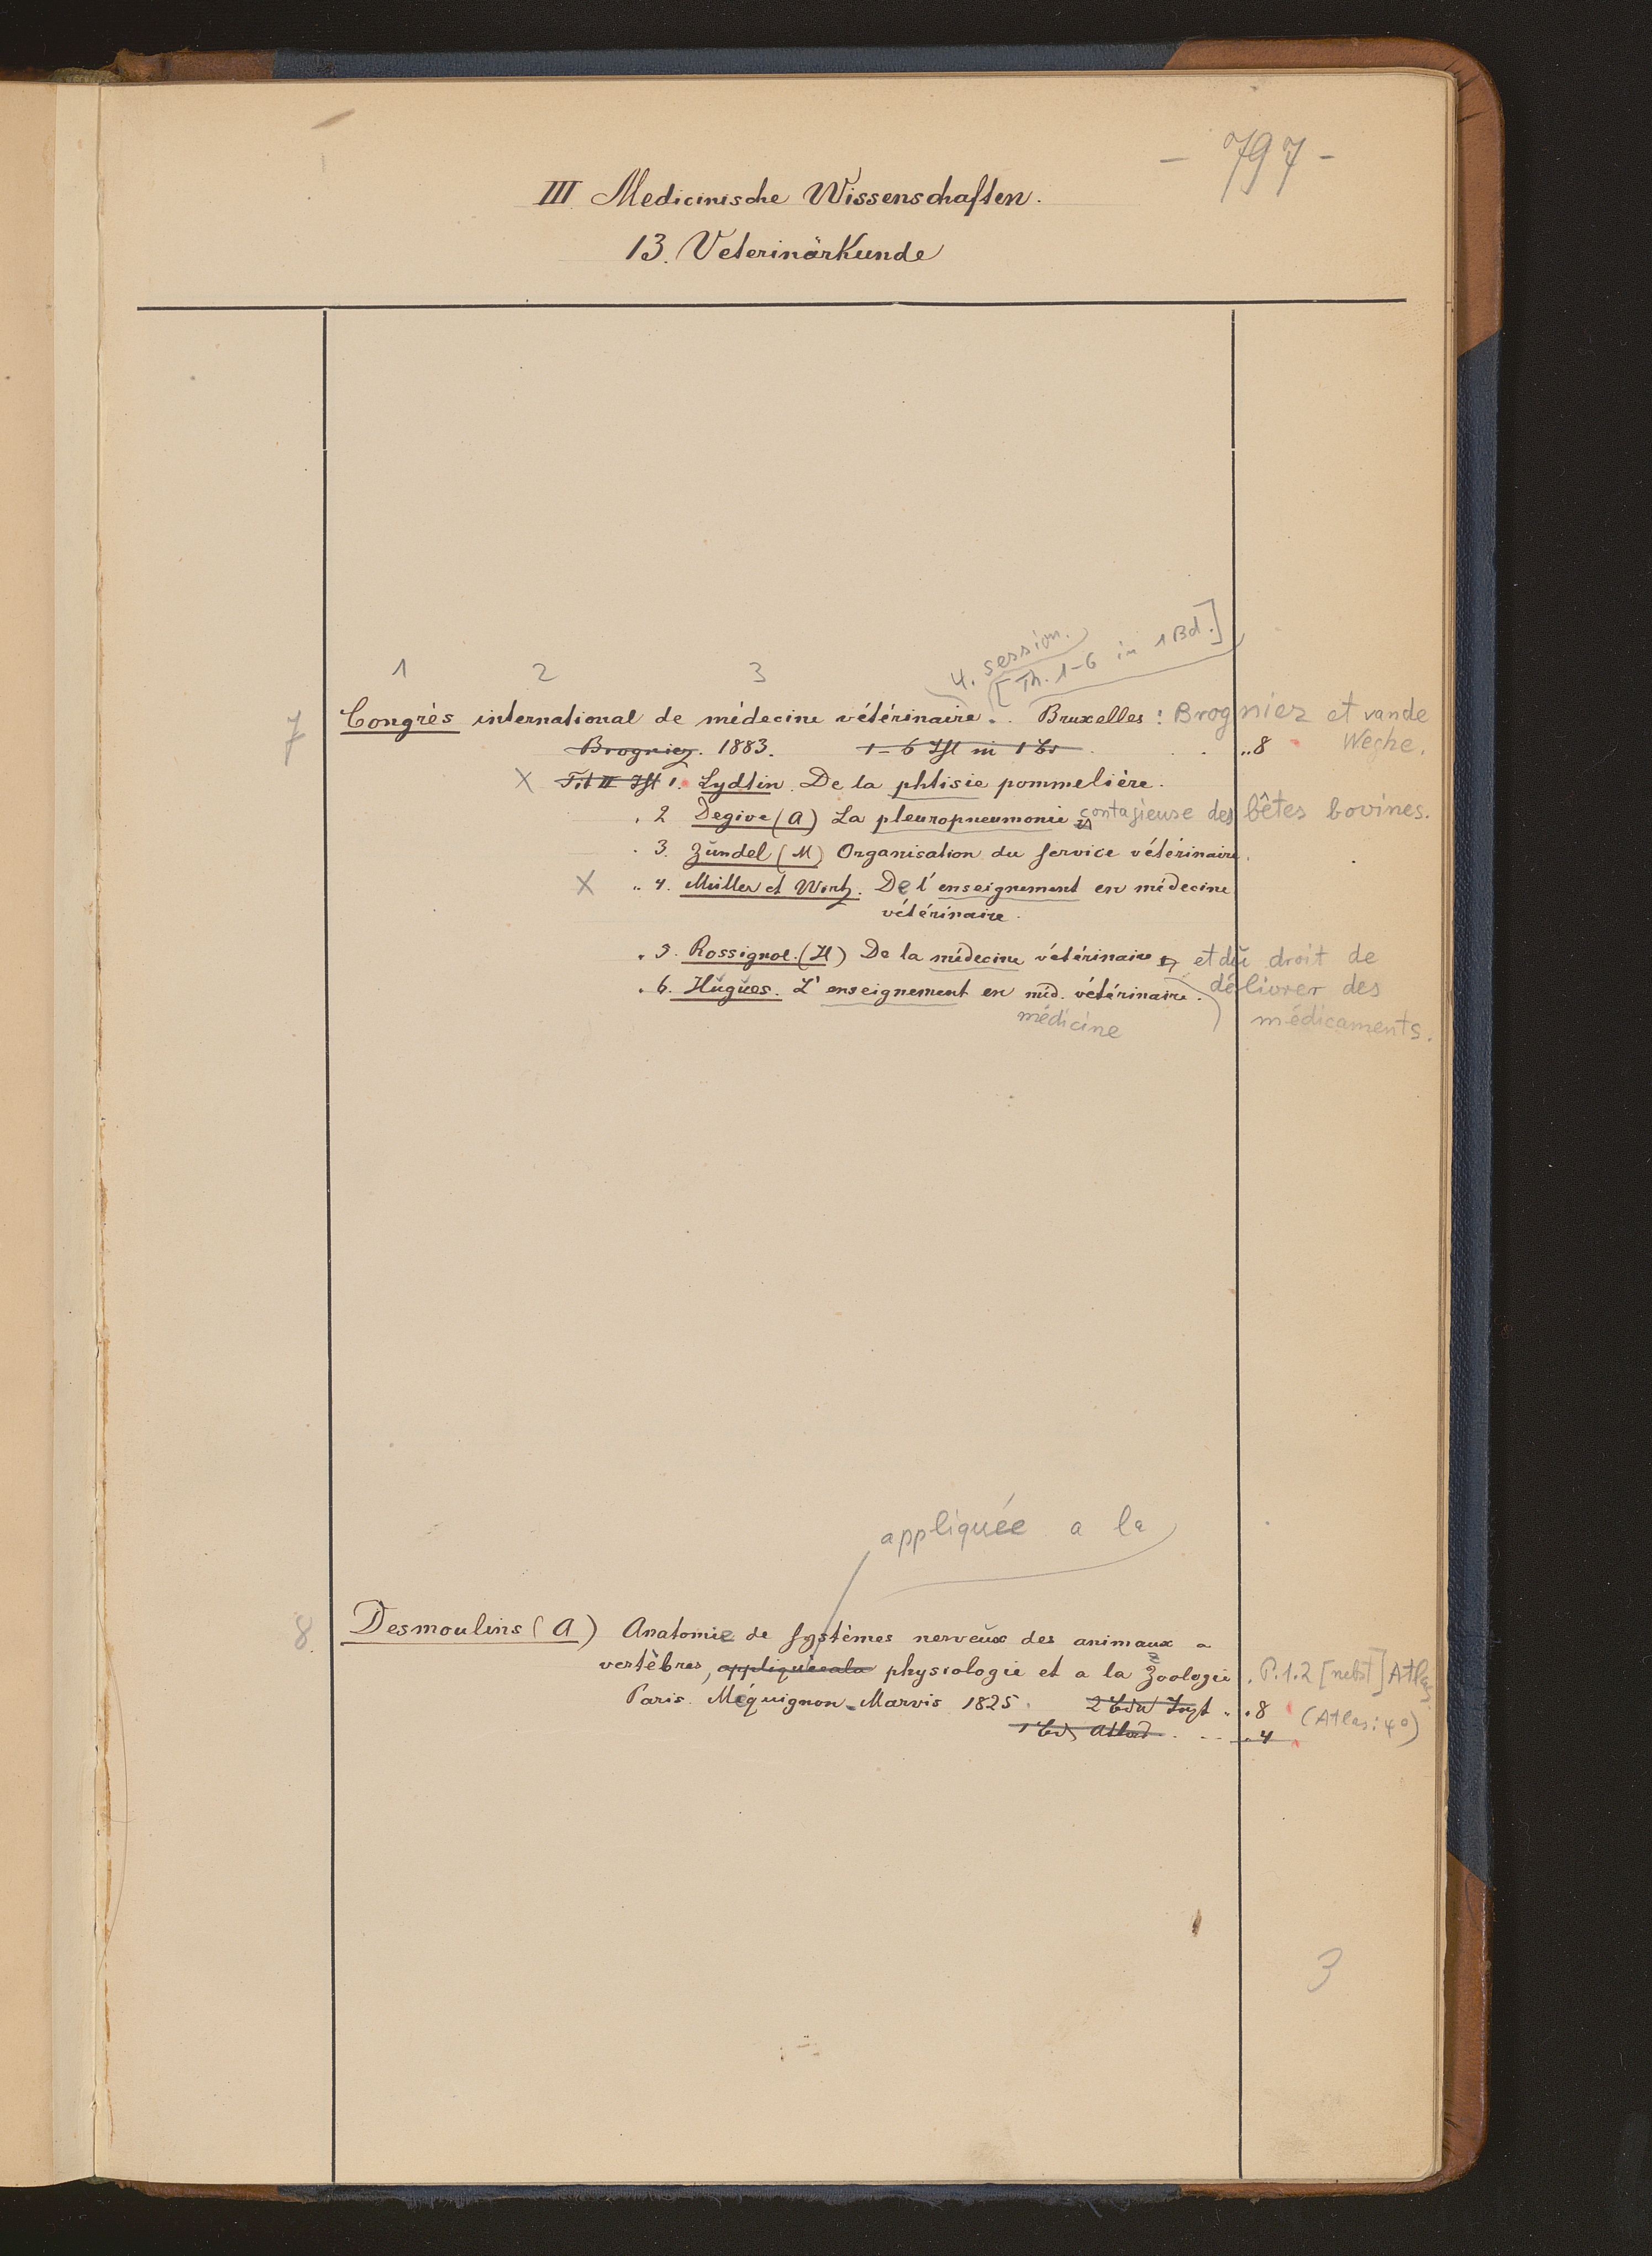 - 797 -
III Medicinische Wissenschaften.
13. Veterinärkunde
4. session.
[Th. 1-6 in 1 Bd.]
1 2 3
7 Congrès international de médecine vétérinaire. . Bruxelles : Brogniez et vande
Brogniez. 1883. 1-6 in 1 . . „8 Weghe.
X Tit II 1. Lydtin. De la phtisie pommelière.
. 2 Degive (A) La pleuropneumonie contagieuse des bêtes bovines.
. 3. Zündel (M) Organisation du service vétérinaire.
X „ 4. Müller et Wirtz. De l'enseignement en médecine
vétérinaire.
. 5. Rossignol. (H) De la médecine vétérinaire et dŭ droit de
. 6. Hŭgŭes. L'enseignement en méd. vétérinaire. délivrer des
médicine médicaments.
appliquée a la
8. Desmoulins (A) Anatomie de systèmes nerveŭx des animaux a
vertèbres, appliquée a la physiologie et a la Zoologie. P.1.2 [nebst] Atlas.
Paris. Méquignon-Marvis 1825. 2 „ „8 (Atlas: 4°)
1 Atlas . . . „4
3